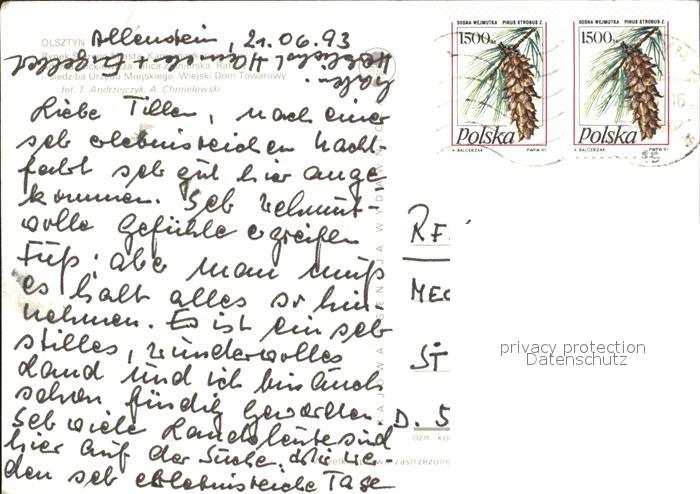 OLSZTYN
Allenstein, 21.06.93
siedziba Urzędu Miejskiego. Wiejski Dom Towarowy
fot. T. Andrzejczyk, A. Chmielewski
Liebe Tillen, nach einer
sehr erlebnisreichen Nacht-
fahrt sehr gut hier ange
kommen. Sehr wehmut-
volle Gefühle ergreifen
; aber man muß
es halt alles so hin
nehmen. Es ist ein sehr
stilles, wundervolles
Land und ich bin auch
schon fündig geworden.
Sehr viele Landsleute sind
hier auf der Suche. Wir wer
den sehr erlebnisreiche Tage
SOSNA WEJMUTKA PINUS STROBUS Z.
1500zł
Polska
A. BALCERZAK PWPW 91
SOSNA WEJMUTKA PINUS STROBUS Z.
1500zł
Polska
A. BALCERZAK PWPW 91
KRAJOWA AGENCJA WYDAWNICZA
ME
ST
D. 5
privacy protection
Datenschutz